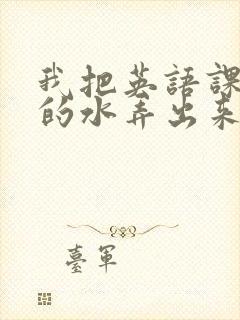 我把英語課
的水弄出來
臺軍